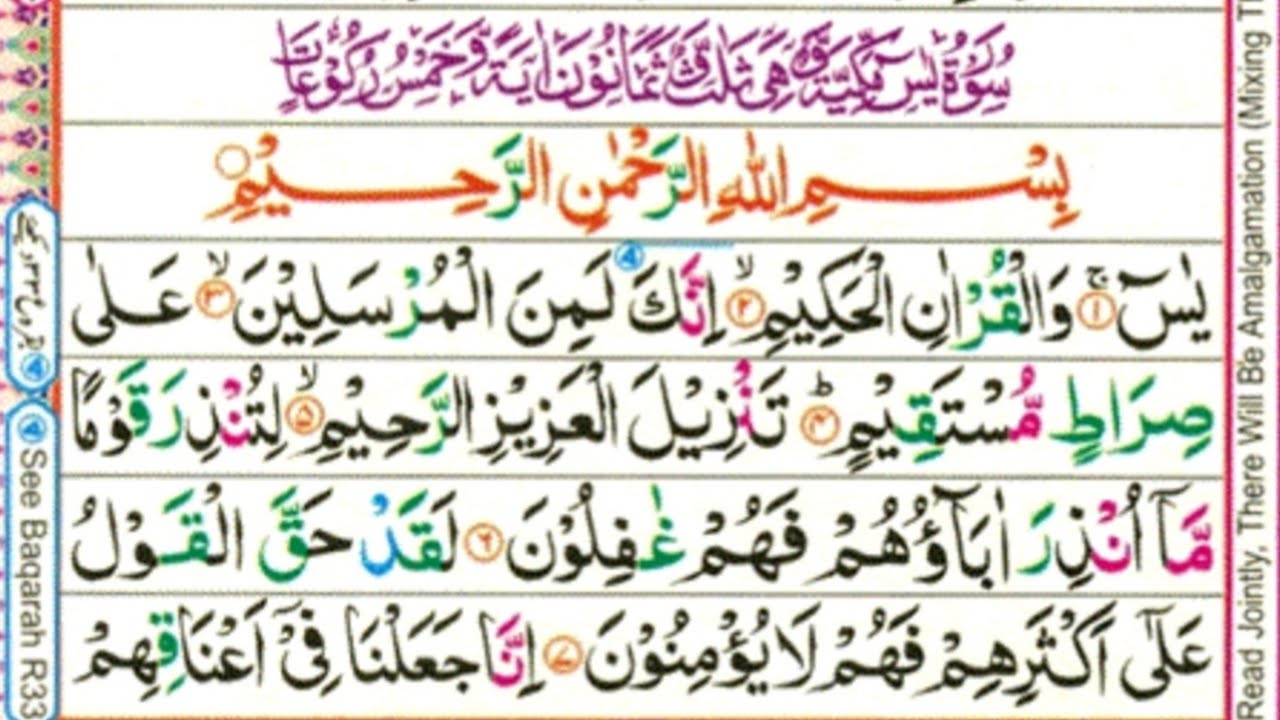 سُوْرَةُ يٰسٓ مَكِّيَّةٌ وَّهِىَ ثَلٰثٌ وَّثَمَانُوْنَ اٰيَةً وَّخَمْسُ رُكُوْعَاتٍ
بِسْمِ اللّٰهِ الرَّحْمٰنِ الرَّحِيْمِ
يٰسٓ ۚ ﴿۱﴾ وَالْقُرْاٰنِ الْحَكِيْمِ ۙ ﴿۲﴾ اِنَّكَ لَمِنَ الْمُرْسَلِيْنَ ۙ ﴿۳﴾ عَلٰى
صِرَاطٍ مُّسْتَقِيْمٍ ؕ ﴿۴﴾ تَنْزِيْلَ الْعَزِيْزِ الرَّحِيْمِ ۙ ﴿۵﴾ لِتُنْذِرَ قَوْمًا
مَّاۤ اُنْذِرَ اٰبَآؤُهُمْ فَهُمْ غٰفِلُوْنَ ﴿۶﴾ لَقَدْ حَقَّ الْقَوْلُ
عَلٰٓى اَكْثَرِهِمْ فَهُمْ لَا يُؤْمِنُوْنَ ﴿۷﴾ اِنَّا جَعَلْنَا فِىْۤ اَعْنَاقِهِمْ
See Baqarah R33
Read Jointly, There Will Be Amalgamation (Mixing